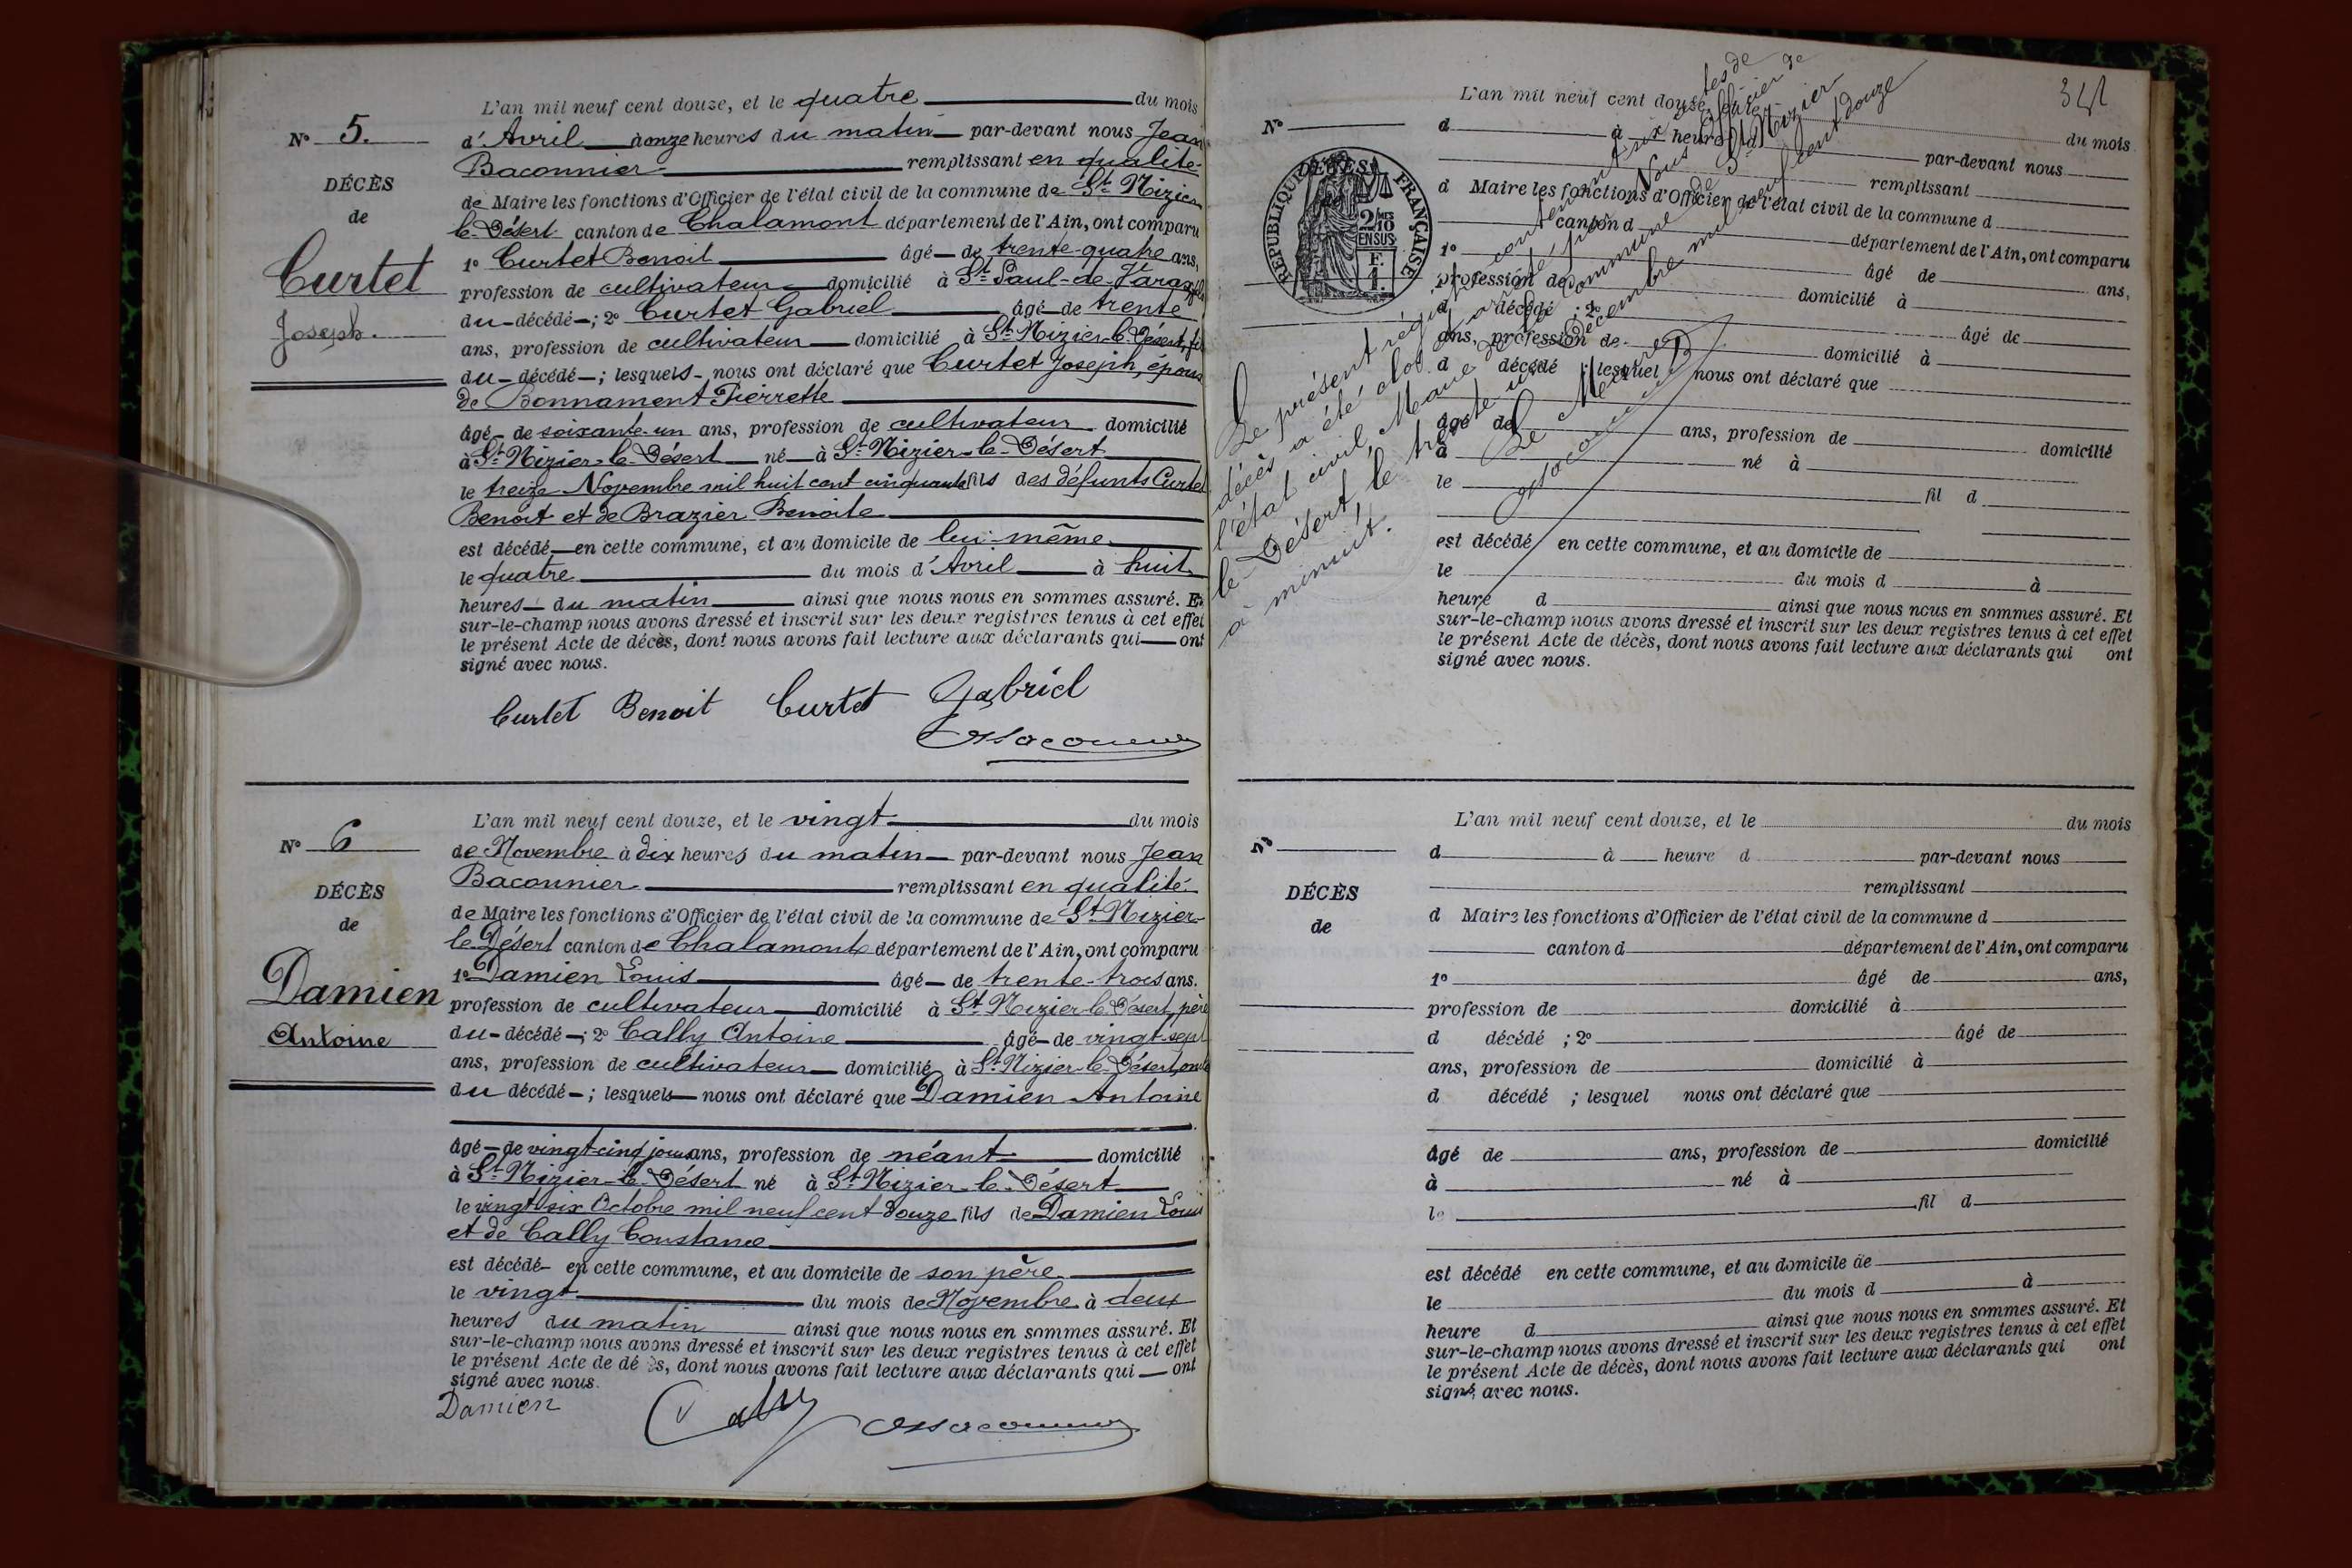 L'an mil neuf cent douze, et le quatre du mois
N° 5.
d'Avril à onze heures du matin par-devant nous Jean
Baconnier remplissant en qualité
DÉCÈS
de Maire les fonctions d'Officier de l'état civil de la commune de St Nizier
de
le-Désert canton de Chalamont département de l'Ain, ont comparu
Curtet
1° Curtet Benoit âgé de trente-quatre ans,
profession de cultivateur domicilié à St Paul-de-Varax, fils
Joseph.
du décédé ; 2° Curtet Gabriel âgé de trente
ans, profession de cultivateur domicilié à St Nizier-le-Désert, fils
du décédé ; lesquels nous ont déclaré que Curtet Joseph, époux
de Bonnament Pierrette
âgé de soixante-un ans, profession de cultivateur domicilié
à St Nizier-le-Désert né à St Nizier-le-Désert
le treize Novembre mil huit cent cinquante fils des défunts Curtet
Benoit et de Brazier Benoite
est décédé en cette commune, et au domicile de lui-même
le quatre du mois d'Avril à huit
heures du matin ainsi que nous nous en sommes assuré. Et
sur-le-champ nous avons dressé et inscrit sur les deux registres tenus à cet effet
le présent Acte de décès, dont nous avons fait lecture aux déclarants qui ont
signé avec nous.
Curtet Benoit Curtet Gabriel
Baconnier
L'an mil neuf cent douze, et le vingt du mois
N° 6
de Novembre à dix heures du matin par-devant nous Jean
Baconnier remplissant en qualité
DÉCÈS
de Maire les fonctions d'Officier de l'état civil de la commune de St Nizier
de
le-Désert canton de Chalamont département de l'Ain, ont comparu
Damien
1° Damien Louis âgé de trente-trois ans.
profession de cultivateur domicilié à St Nizier-le-Désert, père
Antoine
du décédé ; 2° Cally Antoine âgé de vingt-sept
ans, profession de cultivateur domicilié à St Nizier-le-Désert, oncle
du décédé ; lesquels nous ont déclaré que Damien Antoine
âgé de vingt-cinq jours ans, profession de néant domicilié
à St Nizier-le-Désert né à St Nizier-le-Désert
le vingt-six Octobre mil neuf cent douze fils de Damien Louis
et de Cally Constance
est décédé en cette commune, et au domicile de son père
le vingt du mois de Novembre à deux
heures du matin ainsi que nous nous en sommes assuré. Et
sur-le-champ nous avons dressé et inscrit sur les deux registres tenus à cet effet
le présent Acte de décès, dont nous avons fait lecture aux déclarants qui ont
signé avec nous.
Damien Cally Baconnier
L'an mil neuf cent douze, et le du mois
N°
d à heure d par-devant nous
remplissant
d Maire les fonctions d'Officier de l'état civil de la commune d
canton d département de l'Ain, ont comparu
1° âgé de ans,
profession de domicilié à
d décédé ; 2° âgé de
ans, profession de domicilié à
d décédé ; lesquel nous ont déclaré que
âgé de ans, profession de domicilié
à né à
le fil d
est décédé en cette commune, et au domicile de
le du mois d à
heure d ainsi que nous nous en sommes assuré. Et
sur-le-champ nous avons dressé et inscrit sur les deux registres tenus à cet effet
le présent Acte de décès, dont nous avons fait lecture aux déclarants qui ont
signé avec nous.
DÉCÈS
RÉPUBLIQUE FRANÇAISE
2/10
EN SUS
F.
1.
Le présent registre contenant six actes de
décès a été clos et arrêté par Nous officier de
l'état civil, Maire de la commune de St Nizier
le-Désert, le trente un Décembre mil neuf cent douze
à minuit.
Le Maire
Baconnier
L'an mil neuf cent douze, et le du mois
N°
d à heure d par-devant nous
remplissant
DÉCÈS
d Maire les fonctions d'Officier de l'état civil de la commune d
de
canton d département de l'Ain, ont comparu
1° âgé de ans,
profession de domicilié à
d décédé ; 2° âgé de
ans, profession de domicilié à
d décédé ; lesquel nous ont déclaré que
âgé de ans, profession de domicilié
à né à
le fil d
est décédé en cette commune, et au domicile de
le du mois d à
heure d ainsi que nous nous en sommes assuré. Et
sur-le-champ nous avons dressé et inscrit sur les deux registres tenus à cet effet
le présent Acte de décès, dont nous avons fait lecture aux déclarants qui ont
signé avec nous.